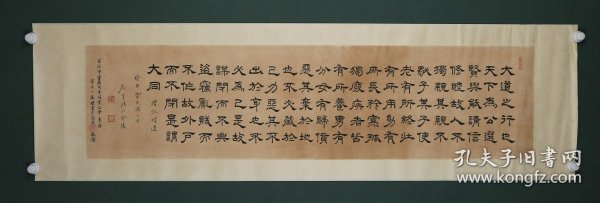 大道之行也
天下為公選
賢與能講信
修睦故人不
獨親其親不
獨子其子使
老有所終壯
有所用幼有
所長矜寡孤
獨廢疾者皆
有所養男有
分女有歸貨
惡其棄於地
也不必藏於
己力惡其不
出於身也不
必為己是故
謀閉而不興
盜竊亂賊而
不作故外戶
而不閉是謂
大同
禮記禮運
孔夫子旧书网
www.kongfz.com